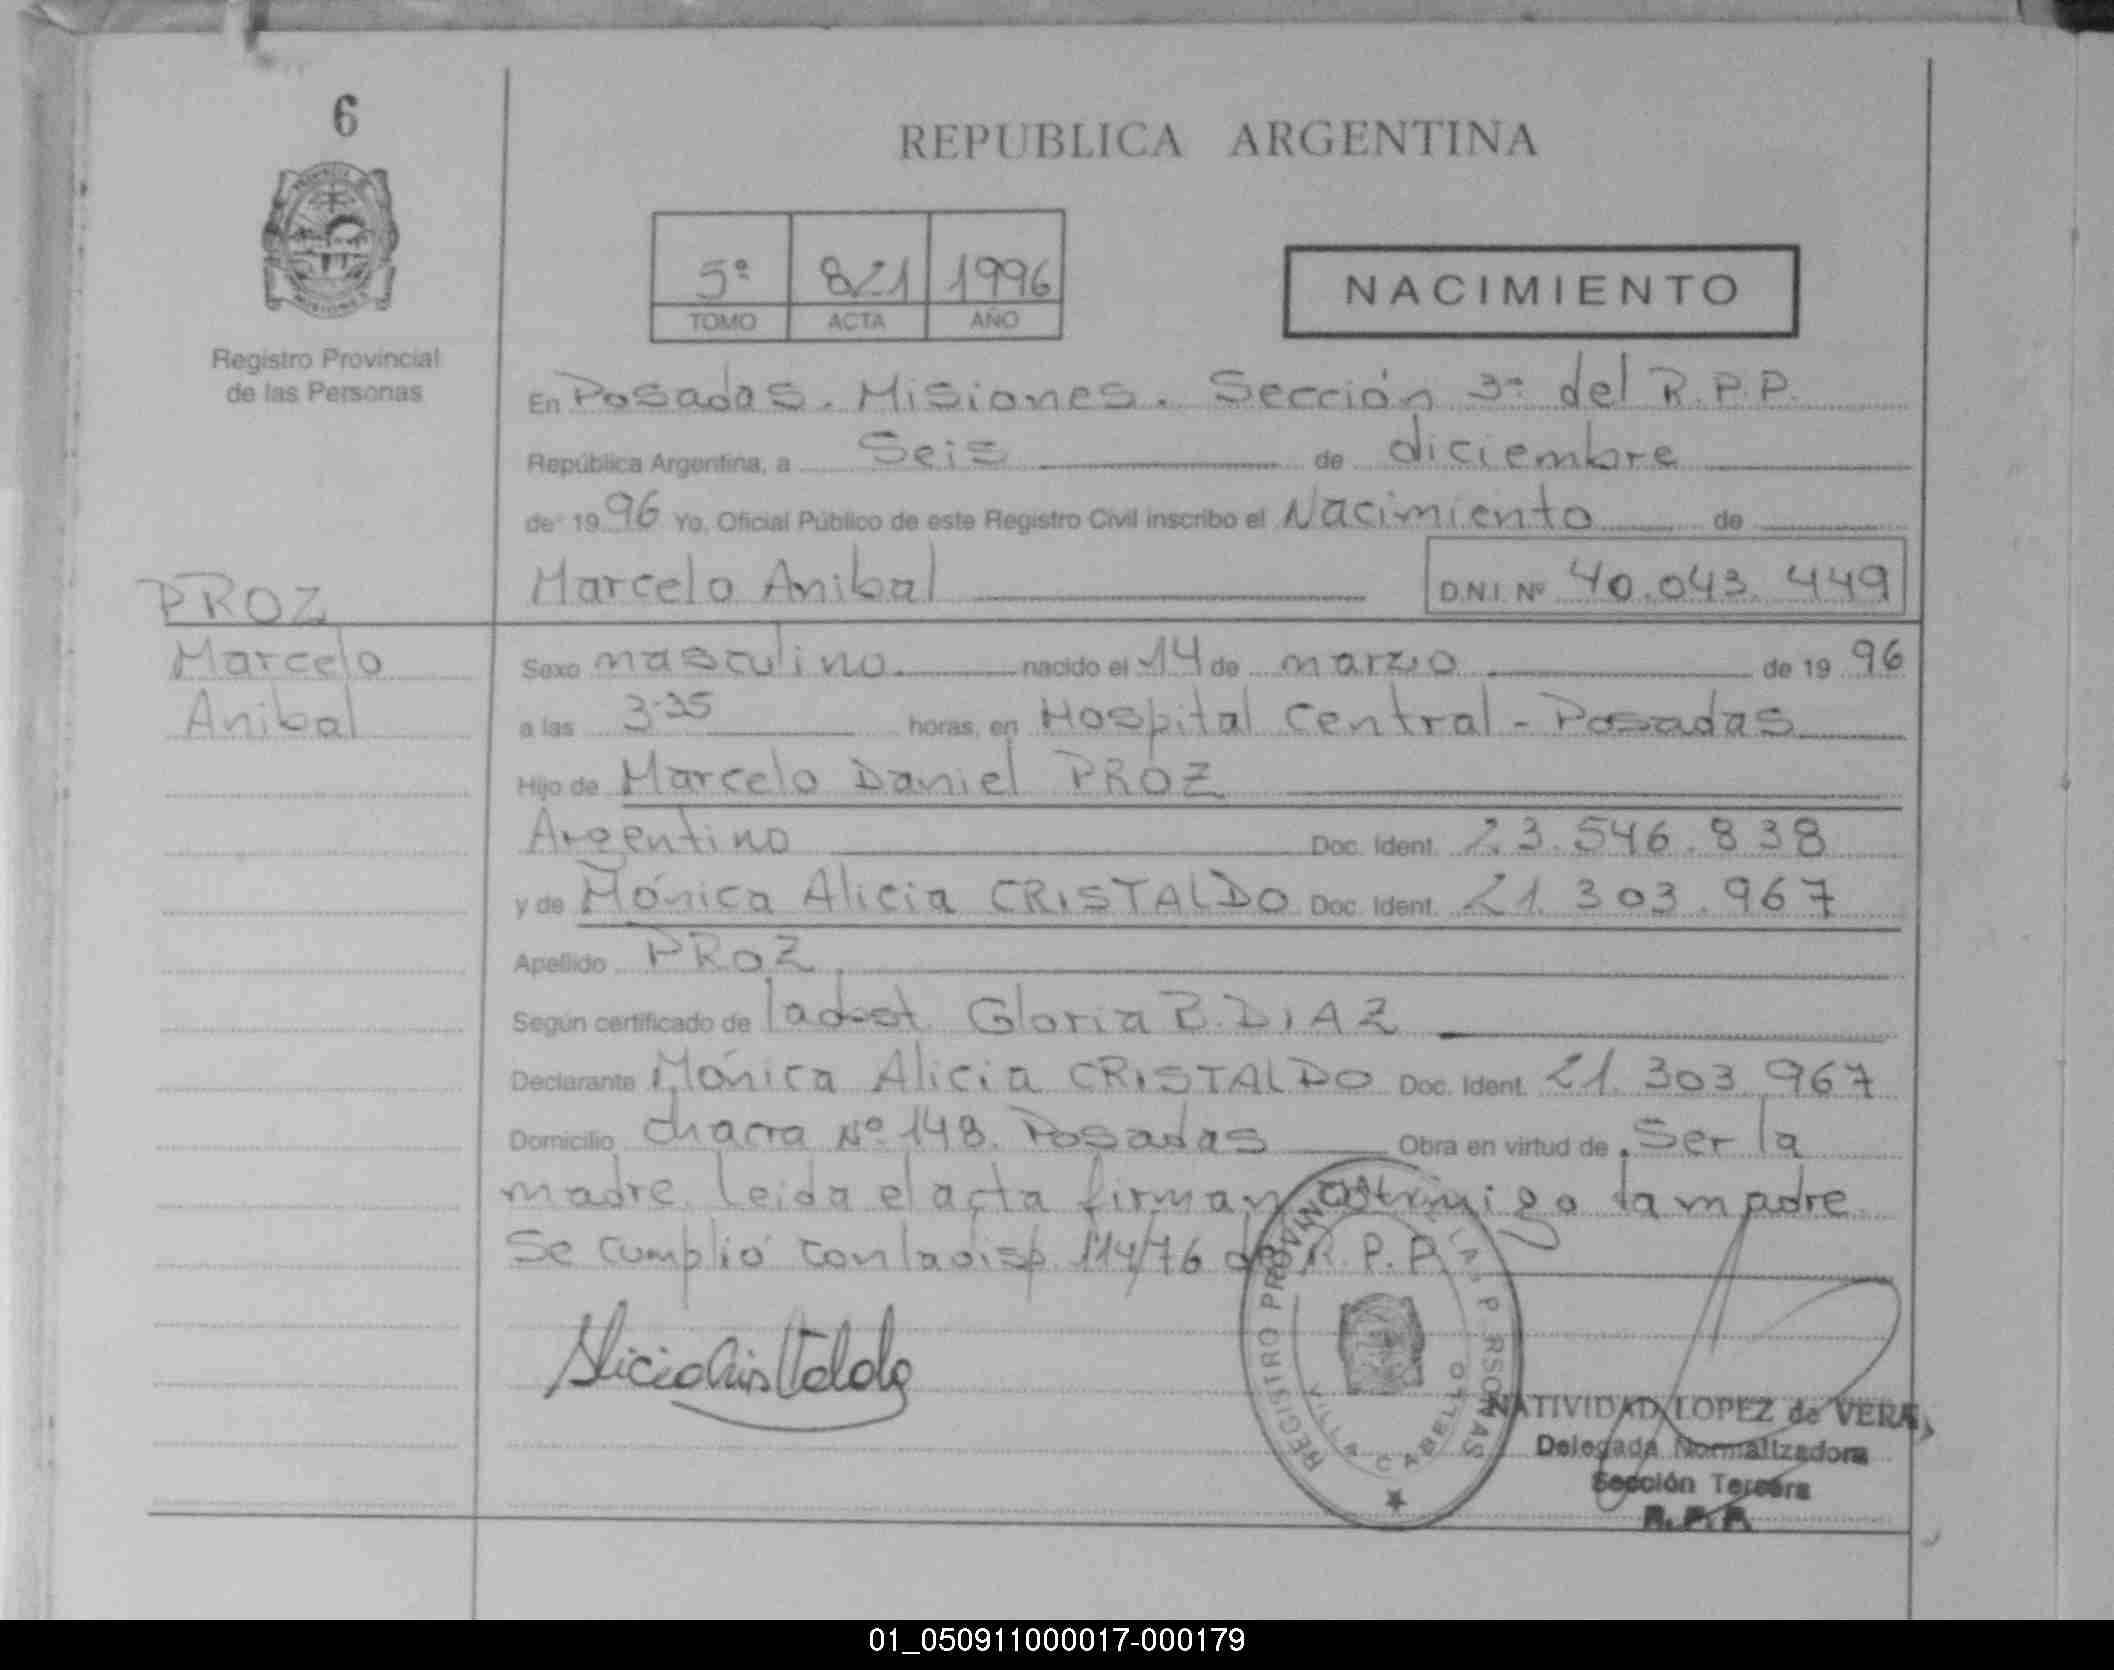 6
REPUBLICA ARGENTINA
5º 821 1996
TOMO ACTA AÑO
NACIMIENTO
Registro Provincial
de las Personas
En Posadas. Misiones. Sección 3ª del R.P.P.
República Argentina, a Seis de diciembre
de 1996 Yo, Oficial Público de este Registro Civil inscribo el Nacimiento de
Marcelo Anibal D.N.I. Nº 40.043.449
PROZ
Marcelo
Anibal
Sexo masculino nacido el 14 de marzo de 1996
a las 3.35 horas, en Hospital Central - Posadas
Hijo de Marcelo Daniel PROZ
Argentino Doc. Ident. 23.546.838
y de Mónica Alicia CRISTALDO Doc. Ident. 21.303.967
Apellido PROZ
Según certificado de Gloria B. DIAZ
Declarante Mónica Alicia CRISTALDO Doc. Ident. 21.303.967
Domicilio chacra Nº 148. Posadas Obra en virtud de Ser la
madre. Leida el acta firman conmigo la madre.
Se cumplió con la disp. 114/76 del R.P.P.
Alicia Cristaldo
REGISTRO PROVINCIAL DE LAS PERSONAS
VILLA CABELLO
NATIVIDAD LOPEZ de VERA
Delegada Normalizadora
Sección Tercera
R.P.P.
01_050911000017-000179